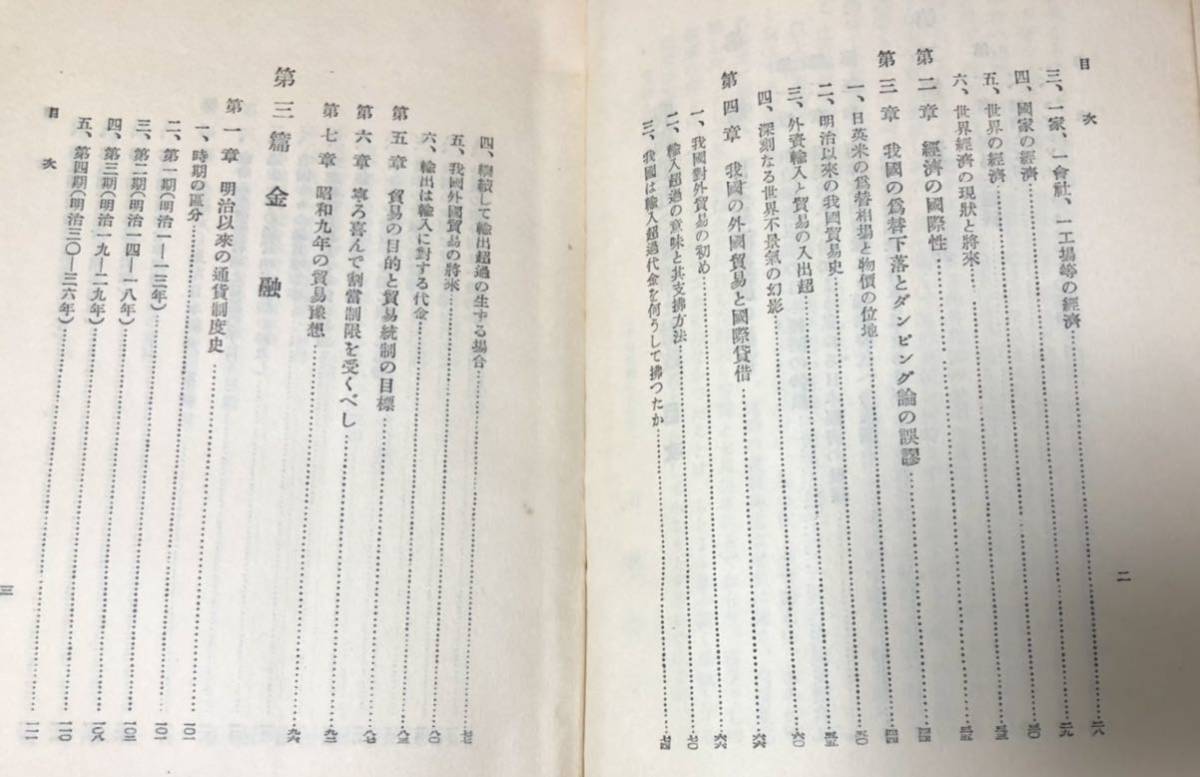 目次
三、一家、一會社、一工場等の經濟……二九
四、國家の經濟……三〇
五、世界の經濟……三五
六、世界經濟の現狀と將來……三五
第二章 經濟の國際性……四四
第三章 我國の爲替下落とダンピング論の誤謬……四四
一、日英米の爲替相場と物價の位地……五〇
二、明治以來の我國貿易史……五五
三、外資輸入と貿易の入出超……六〇
四、深刻なる世界不景氣の幻影……六六
第四章 我國の外國貿易と國際貸借……六六
一、我國對外貿易の初め……七〇
二、輸入超過の意味と其支拂方法
三、我國は輸入超過代金を何うして拂つたか……七四
二
四、繼續して輸出超過の生ずる場合
五、我國外國貿易の將來
六、輸出は輸入に對する代金……八〇
第五章 貿易の目的と貿易統制の目標
第六章 寧ろ喜んで割當制限を受くべし
第七章 昭和九年の貿易豫想
第三篇 金融……九六
第一章 明治以來の通貨制度史
一、時期の區分……一〇一
二、第一期(明治一―一三年)……一〇二
三、第二期(明治一四―一八年)……一〇三
四、第三期(明治一九―二九年)……一〇八
五、第四期(明治三〇―三六年)……一一〇
目次
三